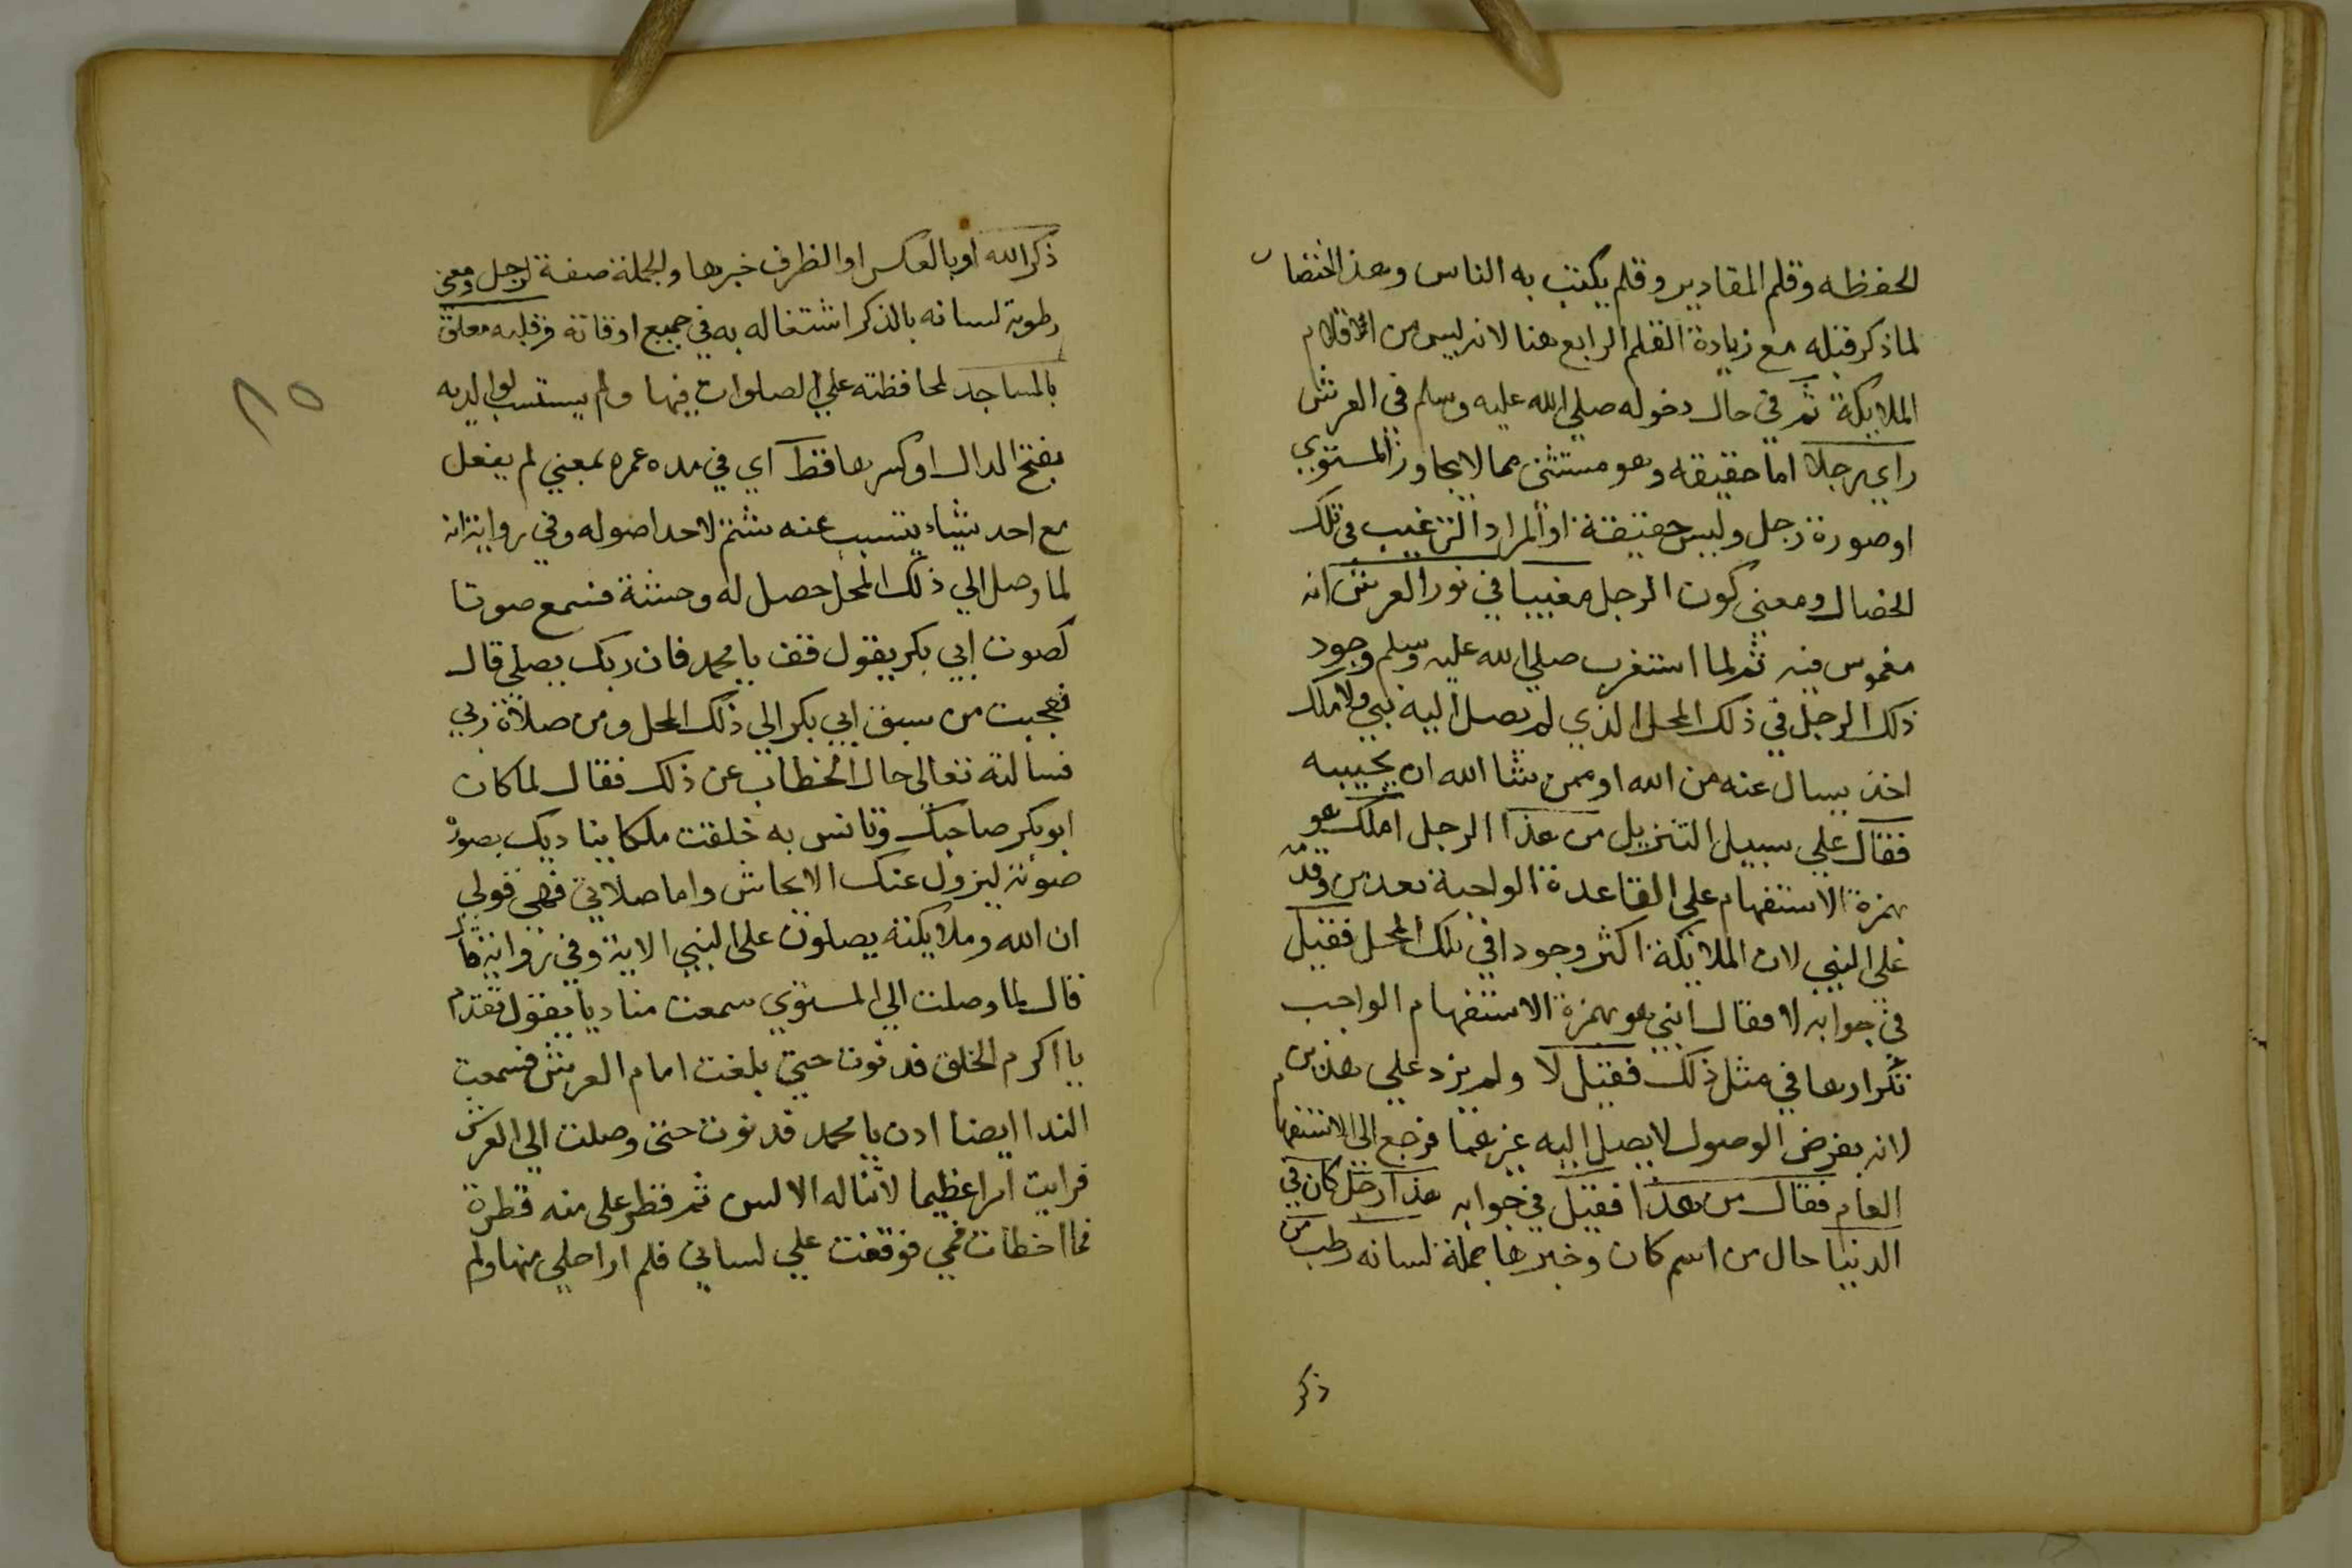 الحفظه وقلم المقادير وقلم يكتب به الناس وهذا اختصار
لما ذكر قبله مع زيادة القلم الرابع هنا لانه ليس من اقلام
الملايكة ثم في حال دخوله صلي الله عليه وسلم في العرش
راي رجلا اما حقيقه وهو مستثنى مما لا يجاوز المستوي
او صورة رجل وليس حقيقة او المراد الترغيب في تلك
الخصال ومعني كون الرجل مغيبا في نور العرش انه
مغموس فيه ثم لما استغرب صلي الله عليه وسلم وجود
ذلك الرجل في ذلك المحل الذي لم يصل اليه نبي ولا ملك
اخذ يسال عنه من الله او ممن شا الله ان يجيبه
فقال علي سبيل التنزيل من هذا الرجل املك هو
بهمزة الاستفهام على القاعدة الواجبة بعد من وقدمه
على النبي لان الملائكة اكثر وجودا في تلك المحل فقيل
في جوابه لا فقال انبي هو بهمزة الاستفهام الواجب
تكرارها في مثل ذلك فقيل لا ولم يزد علي هذين
لانه بفرض الوصول لا يصل اليه غيرهما فرجع الى الاستفهام
العام فقال من هذا فقيل في جوابه هذا رجل كان في
الدنيا حال من اسم كان وخبرها جملة لسانه رطب من
ذكر
ذكر الله او بالعكس او الظرف خبرها والجملة صفة لرجل ومعنى
رطوبة لسانه بالذكر اشتغاله به في جميع اوقاته وقلبه معلق
بالمساجد لمحافظته علي الصلوات فيها ولم يستسب لوالديه
بفتح الدال او كسرها فقط اي في مده عمره بمعني لم يفعل
مع احد شيئا يتسبب عنه شتم لاحد اصوله وفي رواية انه
لما وصل الي ذلك المحل حصل له وحشة فسمع صوتا
كصوت ابي بكر يقول قف يا محمد فان ربك يصلي قال
فعجبت من سبق ابي بكر الي ذلك المحل ومن صلاة ربي
فسالته تعالى حال الخطاب عن ذلك فقال لما كان
ابو بكر صاحبك وتانس به خلقت ملكا يناديك بصورة
صوته ليزول عنك الايحاش واما صلاتي فهي قولي
ان الله وملايكته يصلون على النبي الاية وفي رواية
قال لما وصلت الي المستوي سمعت مناديا يقول تقدم
يا اكرم الخلق فدنوت حتي بلغت امام العرش فسمعت
الندا ايضا ادن يا محمد فدنوت حتى وصلت الي العرش
فرايت امرا عظيما لا تناله الالسن ثم قطر على منه قطرة
فما اخطات فمي فوقعت علي لساني فلم ار احلي منها ولم
٨٥